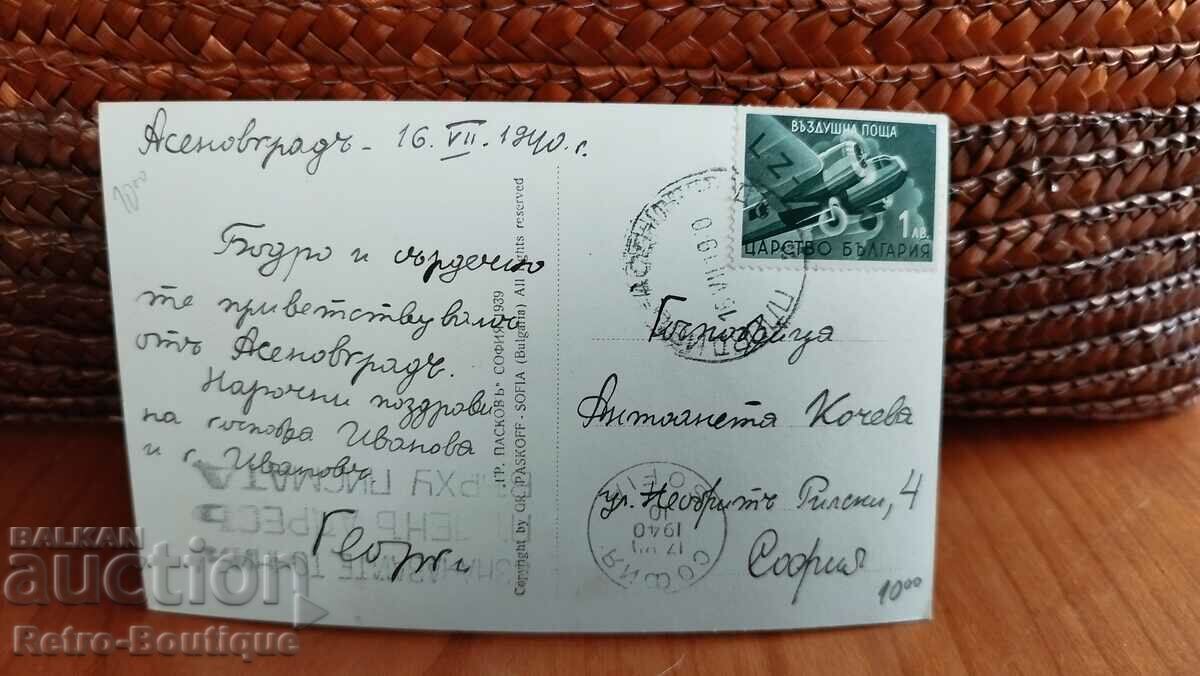 Асеновградъ - 16. VII. 1940 г.
Бодро и сърдечно
те приветствувамъ
отъ Асеновградъ.
Нарочни поздрави
на госпожа Иванова
и г. Ивановъ
Георги
ГР. ПАСКОВЪ СОФИЯ 1939
Copyright by GR. PASKOFF - SOFIA (Bulgaria) All rights reserved
ВЪЗДУШНА ПОЩА
1 ЛВ.
ЦАРСТВО БЪЛГАРИЯ
Госпожица
Антоанета Кочева
ул. Неофитъ Рилски, 4
София
СОФИЯ
SOFIA
17 VII
1940
10
ВЪРХУ ПИСМАТА
АДРЕСЪ
10⁰⁰
BALKAN
auction
Retro-Boutique